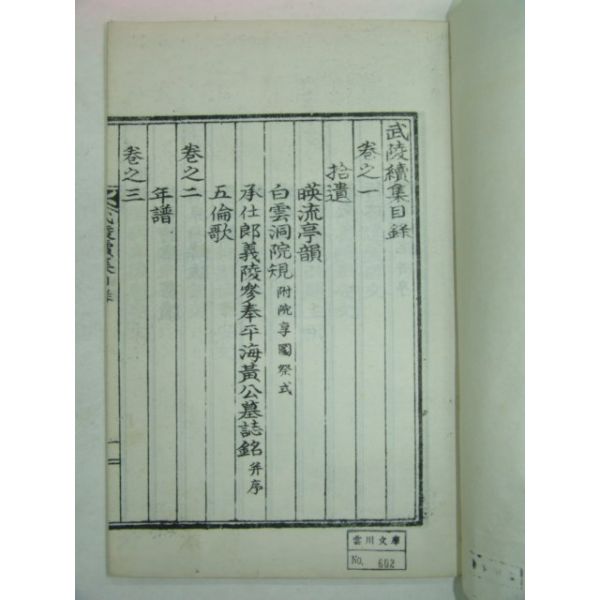 武陵續集目録
卷之一
拾遺
暎流亭韻
白雲洞院規 附院享圖祭式
承仕郎義陵參奉平海黃公墓誌銘 并序
五倫歌
卷之二
年譜
卷之三
雲川文庫
No. 602